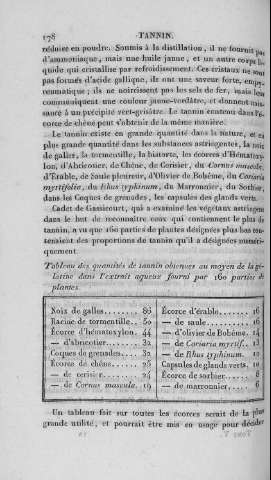 178 TANNIN.
réduire en poudre. Soumis à la distillation, il ne fournit pas
d'ammoniaque, mais une huile jaune, et un autre corps li-
quide qui cristallise par refroidissement. Ces cristaux ne sont
pas formés d'acide gallique, ils ont une saveur forte, empy-
reumatique; ils ne noircissent pas les sels de fer, mais leur
communiquent une couleur jaune-verdâtre, et donnent nais-
sance à un précipité vert-grisâtre. Le tannin contenu dans l'é-
corce de chêne peut s'obtenir de la même manière.
Le tannin existe en grande quantité dans la nature, et en
plus grande quantité dans les substances astringentes, la noix
de galles, la tormentille, la bistorte, les écorces d'Hématoxy-
lon, d'Abricotier, de Chêne, de Cerisier, du Cornus mascula,
d'Érable, de Saule pleureur, d'Olivier de Bohême, du Coriaria
myrtifolia, du Rhus typhinum, du Marronnier, du Sorbier,
dans les Coques de grenades, les capsules des glands verts.
Cadet de Gassicourt, qui a examiné les végétaux astringens
dans le but de reconnaître ceux qui contiennent le plus de
tannin, a vu que 160 parties de plantes désignées plus bas con-
tenaient des proportions de tannin qu'il a désignées numéri-
quement.
Tableau des quantités de tannin obtenues au moyen de la gé-
latine dans l'extrait aqueux fourni par 160 parties de
plantes.
Noix de galles........ 86 Écorce d'érable........ 16
Racine de tormentille.. 50 — de saule........ 16
Écorce d'hématoxylon. 44 — d'olivier de Bohême. 14
— d'abricotier........ 32 — de Coriaria myrtif.. 13
Coques de grenades.... 32 — de Rhus typhinum. 10
Écorce de chêne....... 25 Capsules de glands verts. 10
— de cerisier........ 24 Écorce de sorbier....... 8
— de Cornus mascula. 19 — de marronnier..... 6
Un tableau fait sur toutes les écorces serait de la plus
grande utilité, et pourrait être mis en usage pour décider